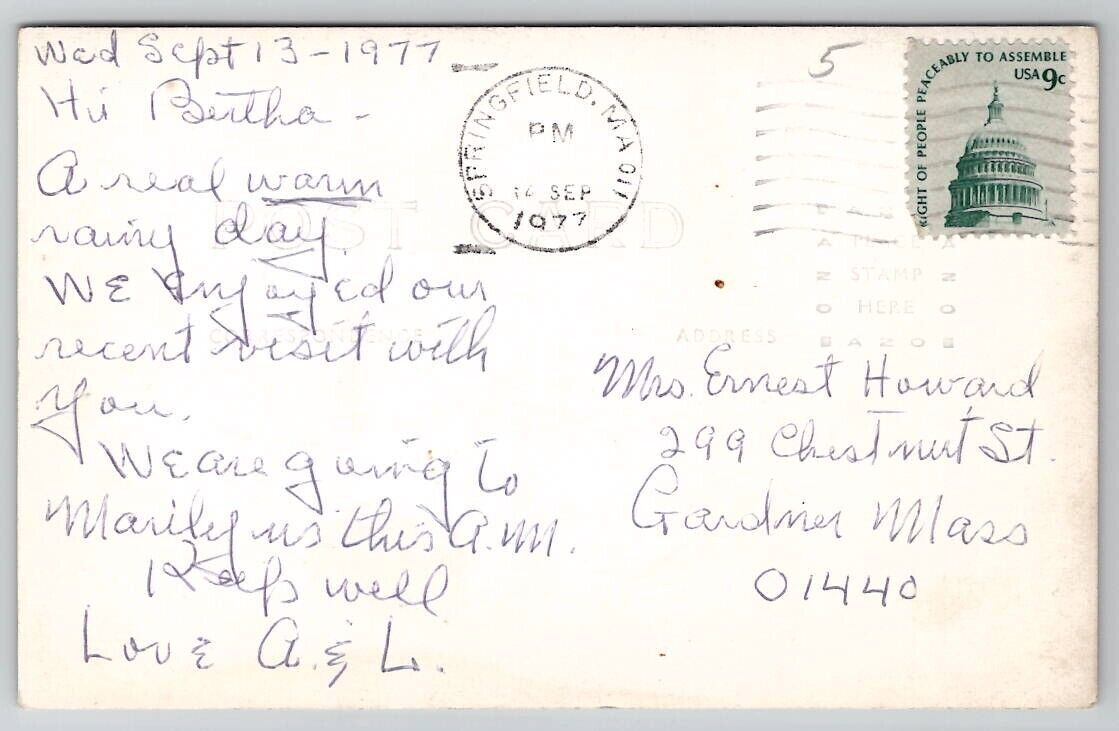 Wed Sept 13-1977
Hi Bertha -
A real warm
rainy day
WE Enjoyed our
recent visit with
you.
WE are going to
Marilyns this A.M.
Keep well
Love A. & L.
SPRINGFIELD, MA 011
PM
14 SEP
1977
5
RIGHT OF PEOPLE PEACEABLY TO ASSEMBLE
USA 9c
POST CARD
CORRESPONDENCE
ADDRESS
PLACE
STAMP
HERE
Mrs. Ernest Howard
299 Chestnut St.
Gardner Mass
01440